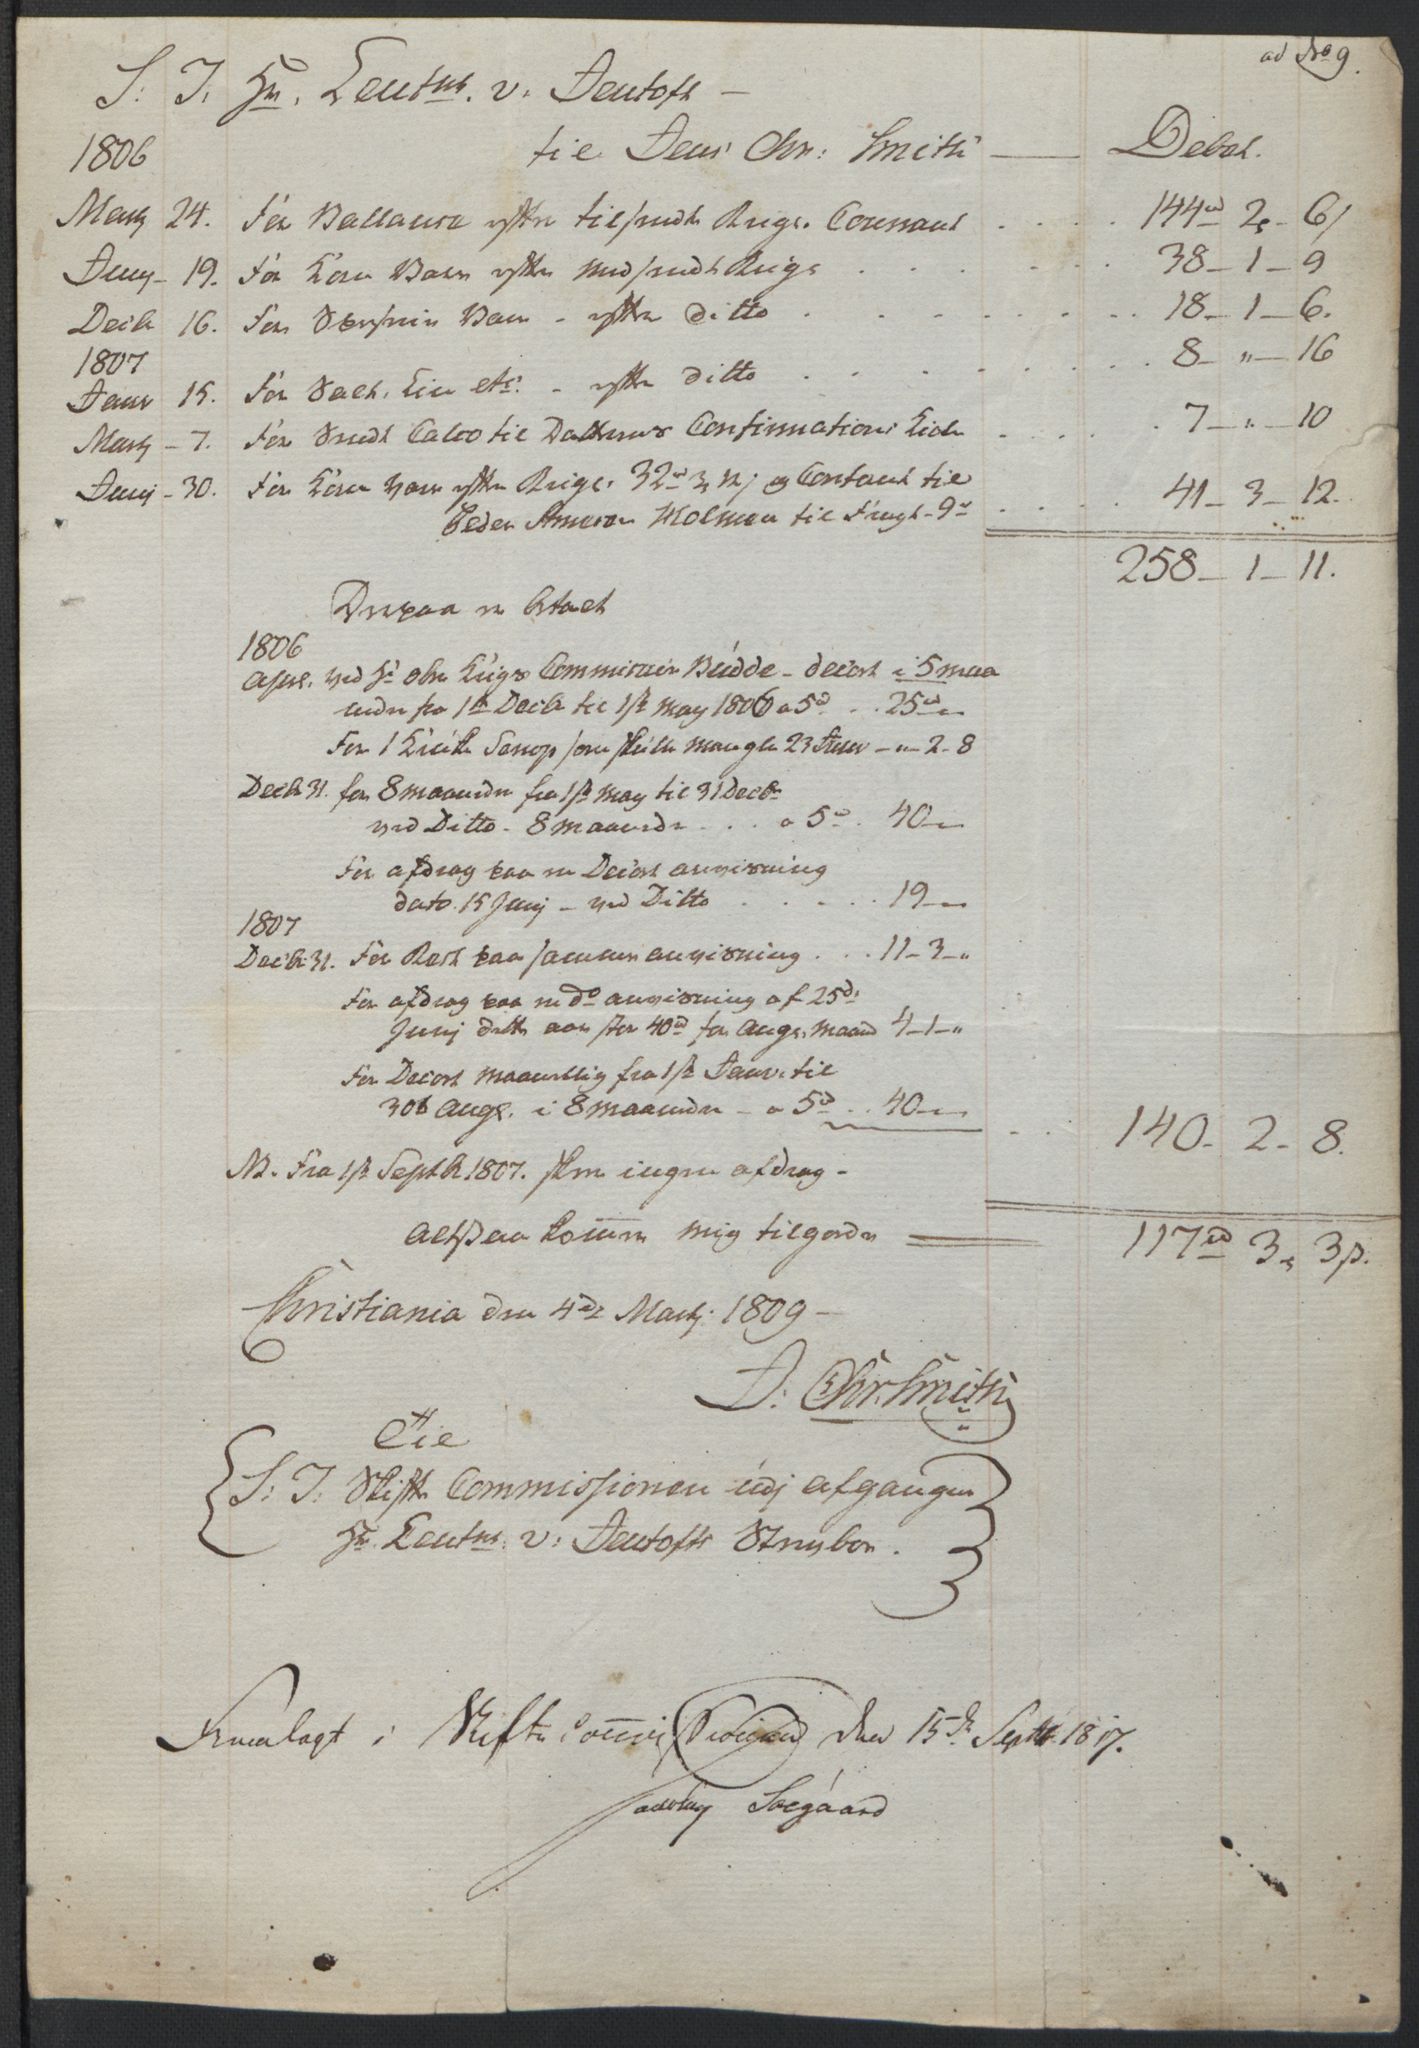 ad No 9.
S: T. Hr. Leutnt. v. Jentoft —
1806 til Jens Chr: Smith — Debet.
Marty 24. For Ballance efter tilsendt Regs. Courant . . . . 144rd 2 - 6 s
Juny - 19. For Kram Vare efter medsendt Regs . . . . . . 38 - 1 - 9
Decbr 16. For Vare - efter ditto . . . . . . . 18 - 1 - 6.
1807
Janr 15. For etc. - efter ditto . . . . . . . 8 - " - 16
Marty - 7. For Sendt til Datterens Confirmations . . . . 7 - " - 10
Junj - 30. For Kram Vare efter Regs. 32rd 3 12 s og Contant til
Peder Holmen til Fragt - 9rd . . . . 41 - 3 - 12.
258 - 1 - 11.
Derpaa er betalt
1806
Apr. ved Hr. Krigs Commissair Budde - decort i 5 maa
neder fra 1ste Decbr til 1ste May 1806 a 5rd . . 25rd „
For 1 som skulle mangle - „ - 2 - 8
Decbr 31. for 8 maaneder fra 1ste May til 31 Decbr
ved Ditto - 8 maaneder . . . a 5rd . 40 - „
For afdrag paa en Decort anvisning
dato 15 Junj - ved Ditto . . . . . 19 - „
1807
Decbr 31. For Rest paa samme anvisning . . . 11 - 3 - „
For afdrag paa en do anvisning af 25de
Junj dette aar stor 40rd for Augs. Maaned 4 - 1 - „
For Decort maanetlig fra 1ste Janv. til
30te Augs. i 8 maaneder - a 5rd . . 40 - „ . . 140 - 2 - 8.
NB. Fra 1ste Septbr 1807. skeer ingen afdrag -
altsaa kommer mig tilgode 117rd 3 3 s.
Christiania den 4de Marty 1809 —
J: Chr. Smith
Til
S: T: Skifte Commissionen udj afgangne
Hr. Leutnt: v: Jentofts Sterboe.
Fremlagt i Skifte Commissionen den 15de Septbr 1817.
Soegaard